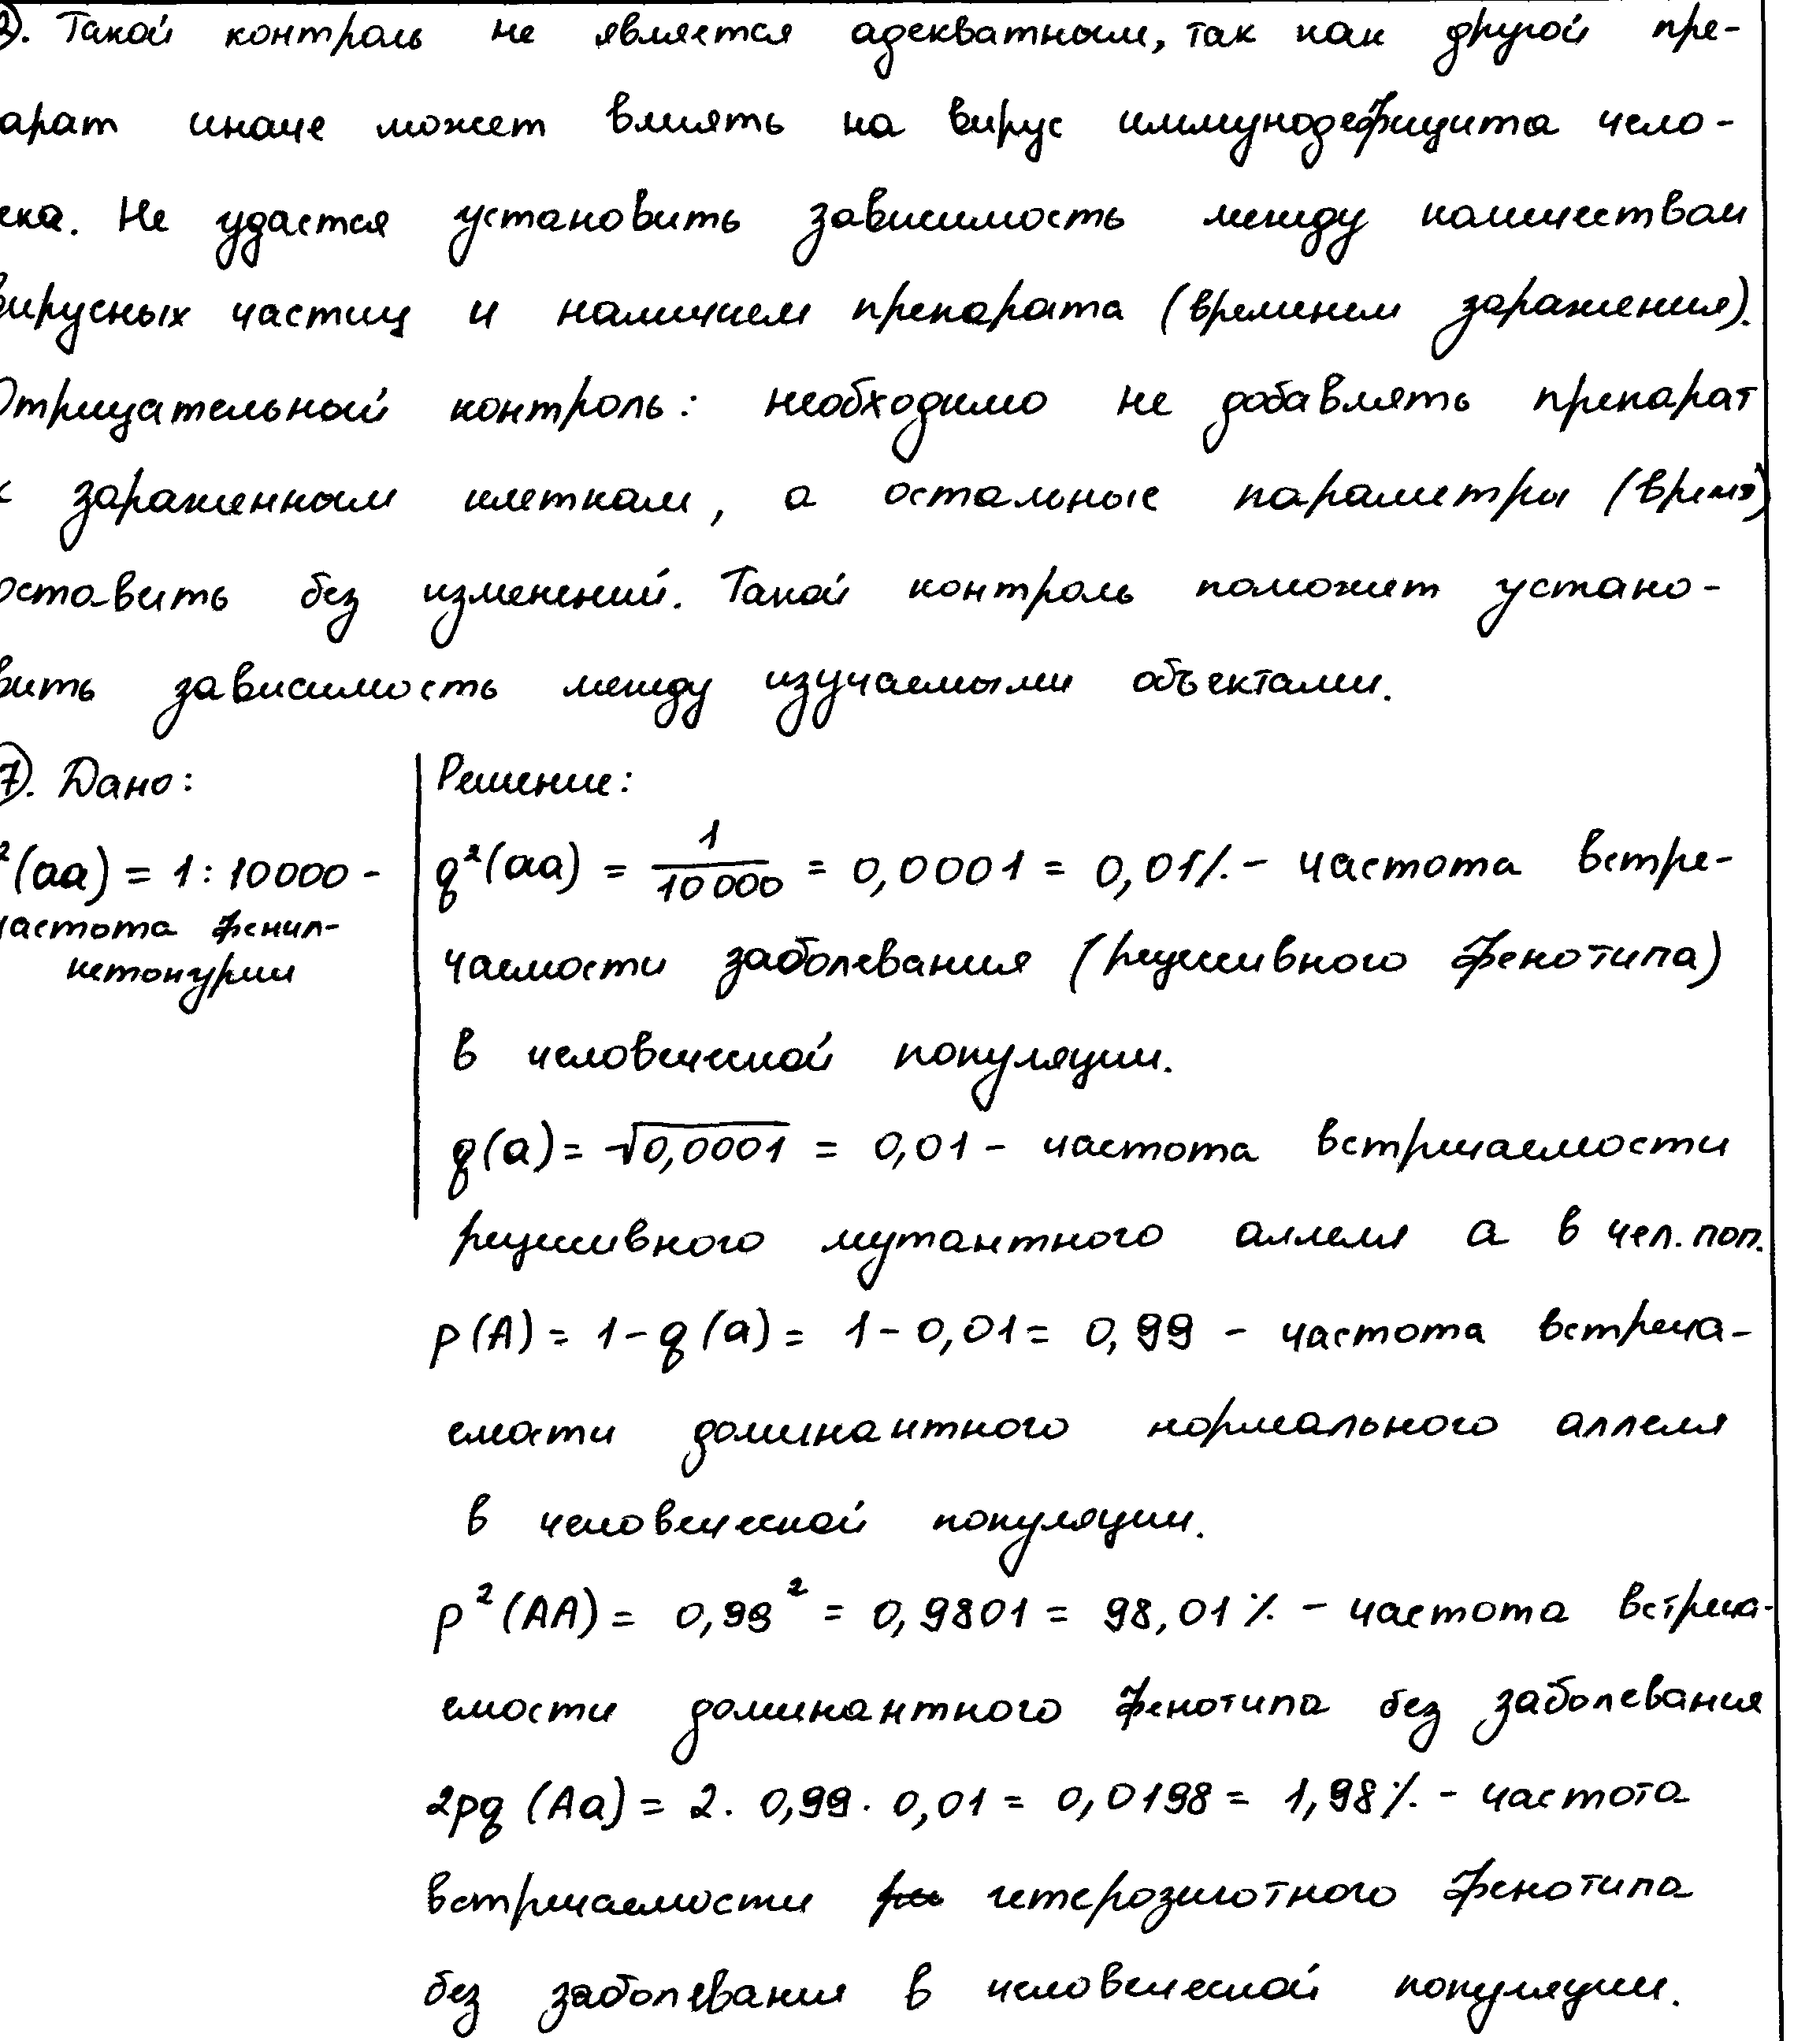 2). Такой контроль не является адекватным, так как другой пре-
арат иначе может влиять на вирус иммунодефицита чело-
ека. Не удастся установить зависимость между количеством
вирусных частиц и наличием препарата (временем заражения).
Отрицательный контроль: необходимо не добавлять препарат
к зараженным клеткам, а остальные параметры (время)
оставить без изменений. Такой контроль поможет устано-
вить зависимость между изучаемыми объектами.
7). Дано:
²(aa) = 1 : 10000 -
частота фенил-
кетонурии
Решение:
q²(aa) = 1/10 000 = 0,0001 = 0,01% - частота встре-
чаемости заболевания (рецессивного фенотипа)
в человеческой популяции.
q(a) = √0,0001 = 0,01 - частота встречаемости
рецессивного мутантного аллеля а в чел. поп.
p(A) = 1 - q(a) = 1 - 0,01 = 0,99 - частота встреча-
емости доминантного нормального аллеля
в человеческой популяции.
p²(AA) = 0,99² = 0,9801 = 98,01% - частота встреча-
емости доминантного фенотипа без заболевания
2pq (Aa) = 2 · 0,99 · 0,01 = 0,0198 = 1,98% - частота
встречаемости гетерозиготного фенотипа
без заболевания в человеческой популяции.